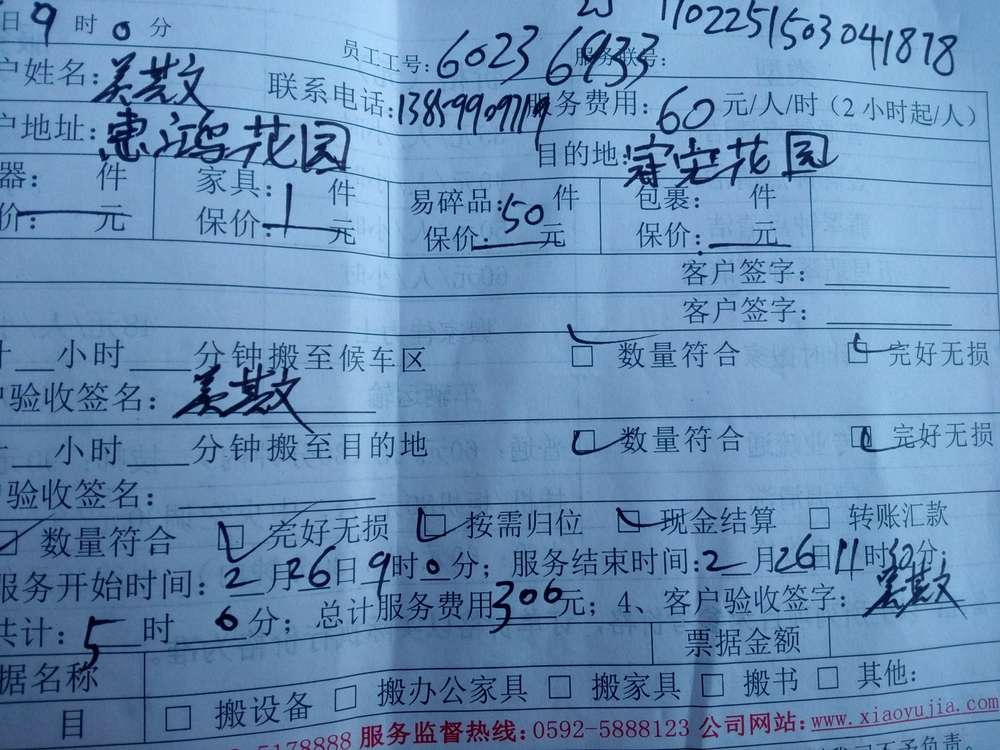 日 9 时 0 分
员工工号: 6023 6933 服务联号: 1102251503041878
户姓名: 联系电话: 服务费用: 60 元/人/时（2 小时起/人）
户地址: 惠鸿花园 目的地: 花园
器: 件 家具: 件 易碎品: 件 包裹: 件
价: 元 保价: 1 元 保价: 50 元 保价: 元
客户签字:
客户签字:
计 小时 分钟搬至候车区 □ 数量符合 □ 完好无损
户验收签名:
计 小时 分钟搬至目的地 □ 数量符合 □ 完好无损
户验收签名:
□ 数量符合 □ 完好无损 □ 按需归位 □ 现金结算 □ 转账汇款
服务开始时间: 2 月 26 日 9 时 0 分；服务结束时间: 2 月 26 日 11 时 30 分；
共计: 5 时 0 分；总计服务费用 300 元；4、客户验收签字:
票据金额
据名称
目 □ 搬设备 □ 搬办公家具 □ 搬家具 □ 搬书 □ 其他:
5178888 服务监督热线: 0592-5888123 公司网站: www.xiaoyujia.com
不予负责。